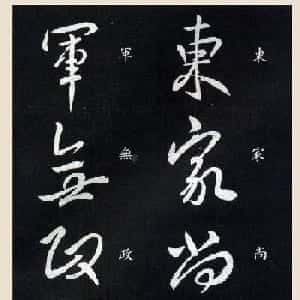 東家尚
東家尚
軍無政
軍無政